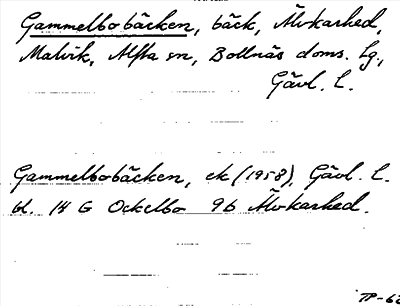 Gammelbobäcken, bäck, Älvkarhed,
Malvik, Alfta sn, Bollnäs doms. lg.,
Gävl. L.
Gammelbobäcken, ek (1958), Gävl. L.
bl. 14 G Ockelbo 9b Älvkarhed.
TP-62